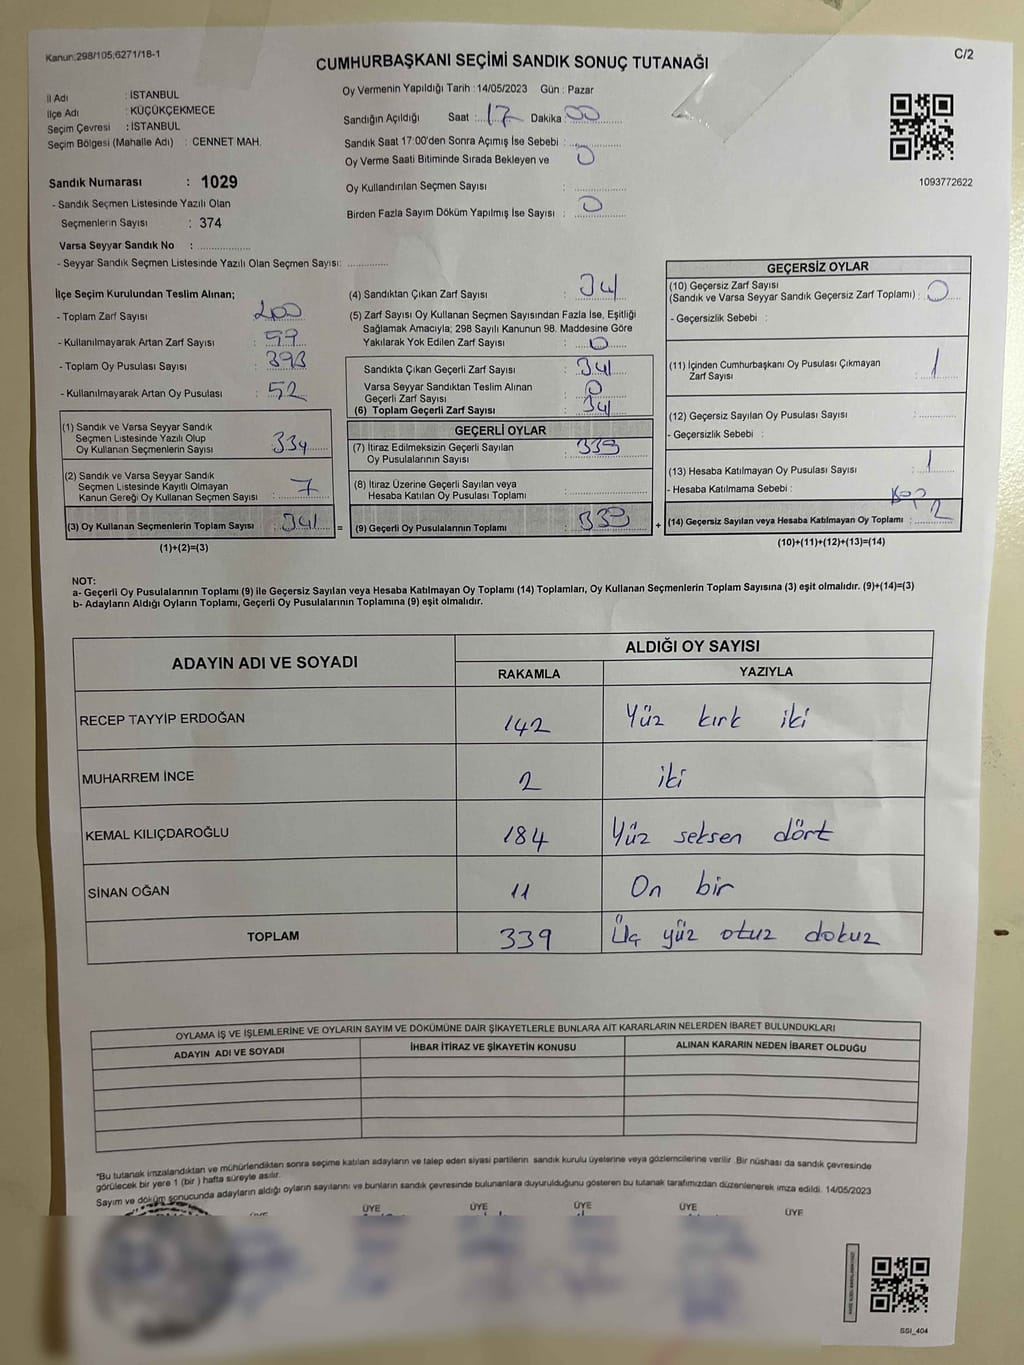 Kanun:298/105,6271/18-1
C/2
CUMHURBAŞKANI SEÇİMİ SANDIK SONUÇ TUTANAĞI
İl Adı : İSTANBUL
İlçe Adı : KÜÇÜKÇEKMECE
Seçim Çevresi : İSTANBUL
Seçim Bölgesi (Mahalle Adı) : CENNET MAH.
Sandık Numarası : 1029
- Sandık Seçmen Listesinde Yazılı Olan
Seçmenlerin Sayısı : 374
Varsa Seyyar Sandık No : ...............
- Seyyar Sandık Seçmen Listesinde Yazılı Olan Seçmen Sayısı: ............
Oy Vermenin Yapıldığı Tarih : 14/05/2023 Gün : Pazar
Sandığın Açıldığı Saat : 17 Dakika : 00
Sandık Saat 17:00'den Sonra Açımış İse Sebebi :
Oy Verme Saati Bitiminde Sırada Bekleyen ve 0
Oy Kullandırılan Seçmen Sayısı :
Birden Fazla Sayım Döküm Yapılmış İse Sayısı : 0
1093772622
İlçe Seçim Kurulundan Teslim Alınan;
- Toplam Zarf Sayısı : 400
- Kullanılmayarak Artan Zarf Sayısı : 59
- Toplam Oy Pusulası Sayısı : 393
- Kullanılmayarak Artan Oy Pusulası : 52
(1) Sandık ve Varsa Seyyar Sandık
Seçmen Listesinde Yazılı Olup
Oy Kullanan Seçmenlerin Sayısı : 334
(2) Sandık ve Varsa Seyyar Sandık
Seçmen Listesinde Kayıtlı Olmayan
Kanun Gereği Oy Kullanan Seçmen Sayısı : 7
(3) Oy Kullanan Seçmenlerin Toplam Sayısı : 341 =
(1)+(2)=(3)
(4) Sandıktan Çıkan Zarf Sayısı : 341
(5) Zarf Sayısı Oy Kullanan Seçmen Sayısından Fazla İse, Eşitliği
Sağlamak Amacıyla; 298 Sayılı Kanunun 98. Maddesine Göre
Yakılarak Yok Edilen Zarf Sayısı : 0
Sandıkta Çıkan Geçerli Zarf Sayısı : 341
Varsa Seyyar Sandıktan Teslim Alınan
Geçerli Zarf Sayısı : 0
(6) Toplam Geçerli Zarf Sayısı : 341
GEÇERLİ OYLAR
(7) İtiraz Edilmeksizin Geçerli Sayılan
Oy Pusulalarının Sayısı : 339
(8) İtiraz Üzerine Geçerli Sayılan veya
Hesaba Katılan Oy Pusulası Toplamı :
(9) Geçerli Oy Pusulalarının Toplamı : 339 +
GEÇERSİZ OYLAR
(10) Geçersiz Zarf Sayısı
(Sandık ve Varsa Seyyar Sandık Geçersiz Zarf Toplamı) : 0
- Geçersizlik Sebebi :
(11) İçinden Cumhurbaşkanı Oy Pusulası Çıkmayan
Zarf Sayısı : 1
(12) Geçersiz Sayılan Oy Pusulası Sayısı :
- Geçersizlik Sebebi :
(13) Hesaba Katılmayan Oy Pusulası Sayısı : 1
- Hesaba Katılmama Sebebi :
(14) Geçersiz Sayılan veya Hesaba Katılmayan Oy Toplamı : 2
(10)+(11)+(12)+(13)=(14)
NOT:
a- Geçerli Oy Pusulalarının Toplamı (9) ile Geçersiz Sayılan veya Hesaba Katılmayan Oy Toplamı (14) Toplamları, Oy Kullanan Seçmenlerin Toplam Sayısına (3) eşit olmalıdır. (9)+(14)=(3)
b- Adayların Aldığı Oyların Toplamı, Geçerli Oy Pusulalarının Toplamına (9) eşit olmalıdır.
ADAYIN ADI VE SOYADI
ALDIĞI OY SAYISI
RAKAMLA YAZIYLA
RECEP TAYYİP ERDOĞAN 142 Yüz kırk iki
MUHARREM İNCE 2 iki
KEMAL KILIÇDAROĞLU 184 Yüz seksen dört
SİNAN OĞAN 11 On bir
TOPLAM 339 Üç yüz otuz dokuz
OYLAMA İŞ VE İŞLEMLERİNE VE OYLARIN SAYIM VE DÖKÜMÜNE DAİR ŞİKAYETLERLE BUNLARA AİT KARARLARIN NELERDEN İBARET BULUNDUKLARI
ADAYIN ADI VE SOYADI İHBAR İTİRAZ VE ŞİKAYETİN KONUSU ALINAN KARARIN NEDEN İBARET OLDUĞU
*Bu tutanak imzalandıktan ve mühürlendikten sonra seçime katılan adayların ve talep eden siyasi partilerin sandık kurulu üyelerine veya gözlemcilerine verilir. Bir nüshası da sandık çevresinde
görülecek bir yere 1 (bir) hafta süreyle asılır.
Sayım ve döküm sonucunda adayların aldığı oyların sayılarını ve bunların sandık çevresinde bulunanlara duyurulduğunu gösteren bu tutanak tarafımızdan düzenlenerek imza edildi. 14/05/2023
ÜYE ÜYE ÜYE ÜYE ÜYE
SSI_404